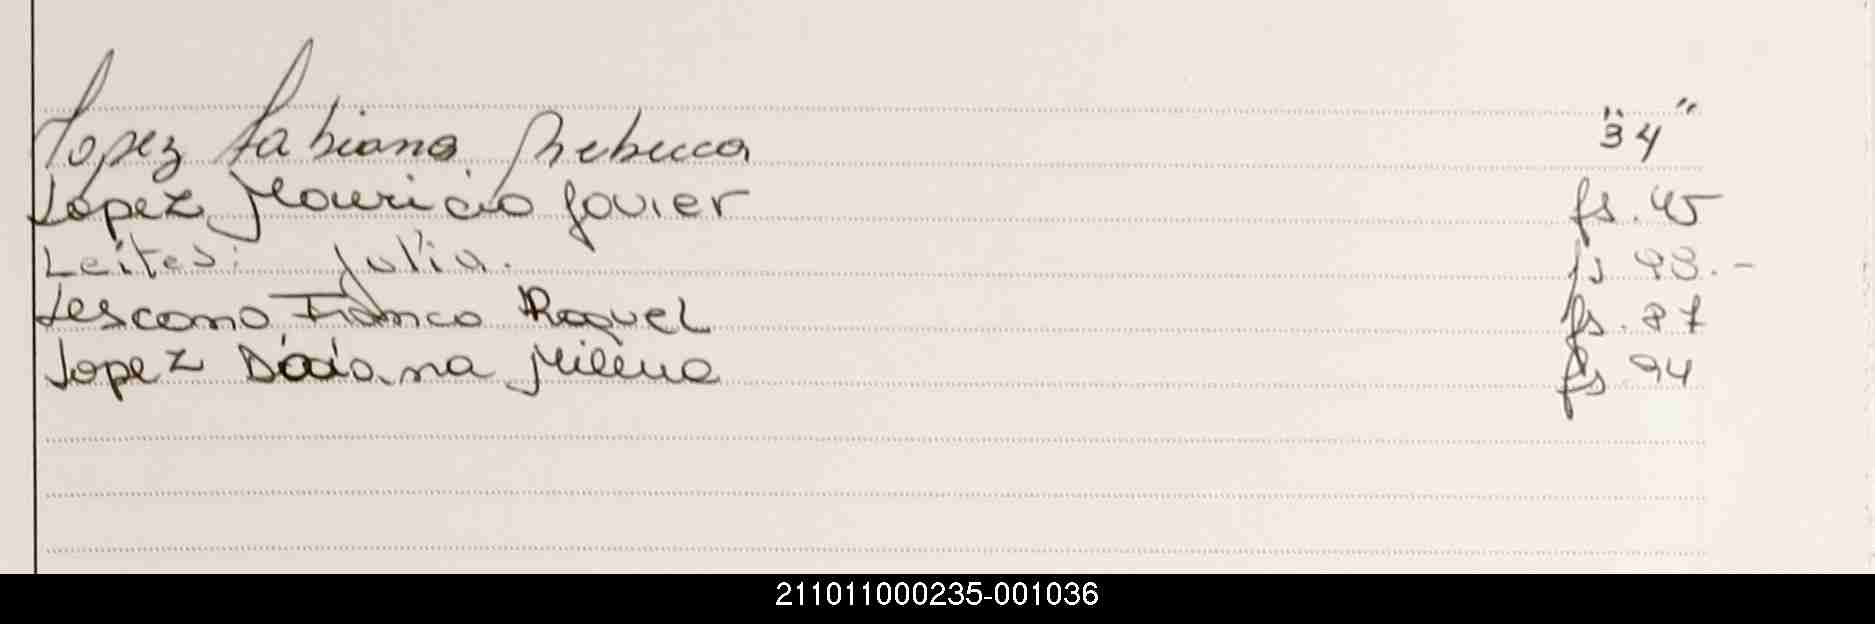 Lopez Fabiana Rebecca " 34 "
Lopez Mauricio Javier fs. 45
Leites: Julia. fs 93.-
Lescano Franco Raquel fs. 87
Lopez Daiana Milena fs. 94
211011000235-001036